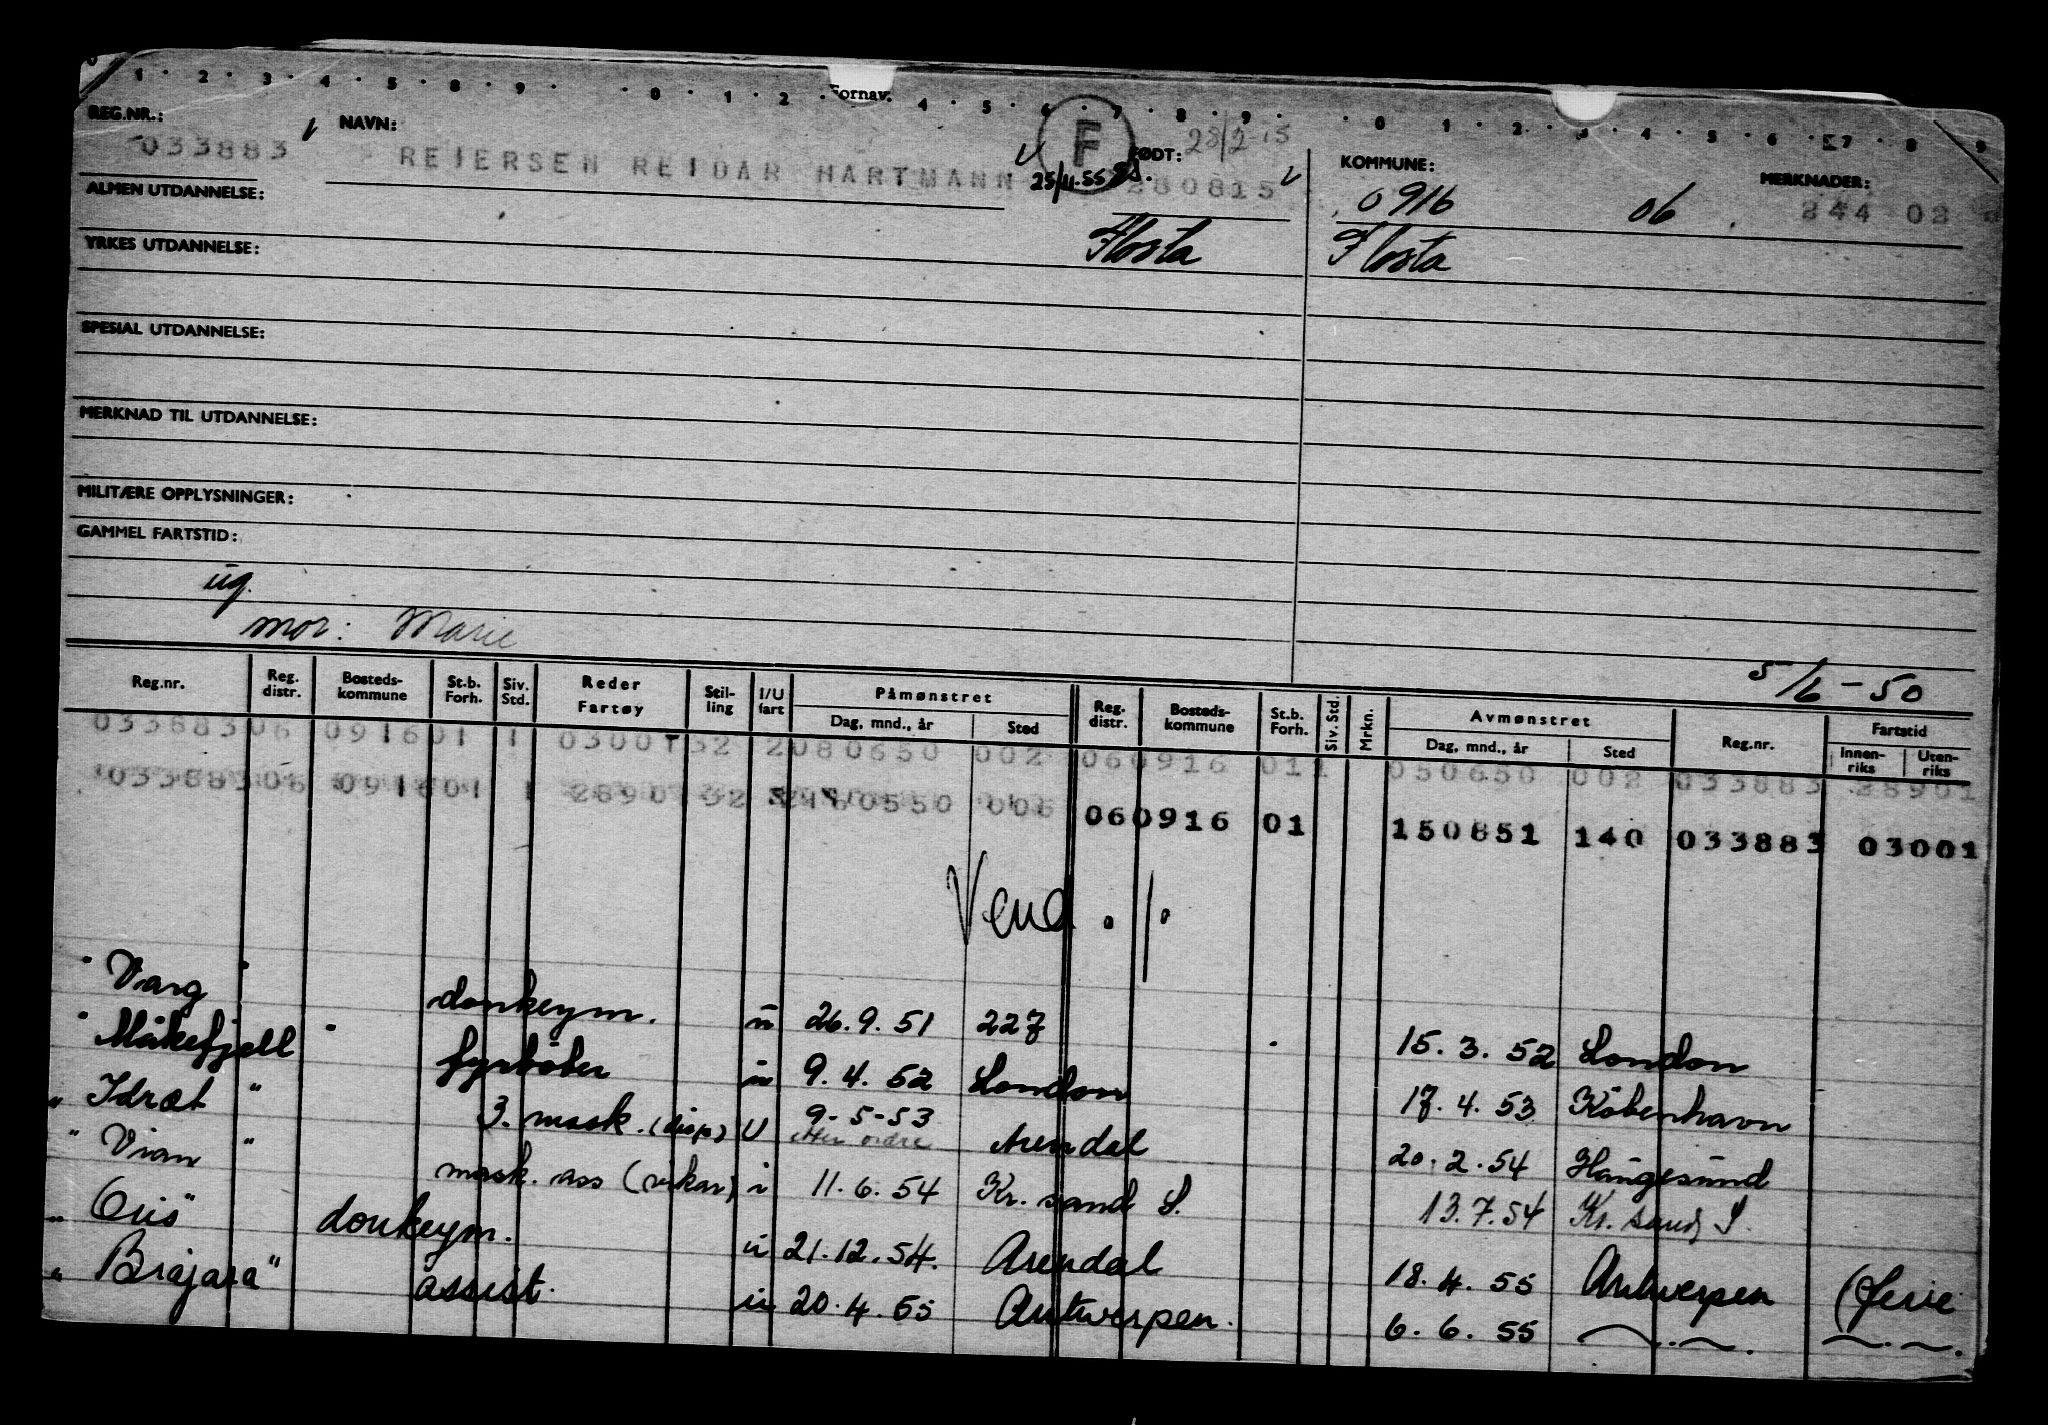 0 1 · 2 · 3 · 4 · 5 · 8 · 9 · · 0 · 1 · 2 · Fornav. 4 · 5 · 6 · 7 · 8 · 9 · · 0 · 1 · 2 · 3 · 4 · 5 · 6 · 7 · 8 · 9
REG.NR.: NAVN: F FØDT: 28/2-15 KOMMUNE: MERKNADER:
033883 REIERSEN REIDAR HARTMANN 25/11.55 280815 0916 06 244 02
ALMEN UTDANNELSE:
Flosta Flosta
YRKES UTDANNELSE:
SPESIAL UTDANNELSE:
MERKNAD TIL UTDANNELSE:
MILITÆRE OPPLYSNINGER:
GAMMEL FARTSTID:
ug.
mor: Marie
5/6-50
Reg.nr. Reg. distr. Bosteds-kommune St.b. Forh. Siv. Std. Reder Fartøy Stil-ling I/U fart Påmønstret Dag, mnd., år Sted Reg. distr. Bosteds-kommune St.b. Forh. Siv. Std. Mrkn. Avmønstret Dag, mnd., år Sted Reg.nr. Fartstid Innen-riks Uten-riks
033883 06 0916 01 1 03001 52 2 080650 002 06 0916 01 1 050650 002 033883 28901
033883 06 0916 01 1 28901 52 2 160550 006 06 0916 01 150851 140 033883 03001
Vend ·/·
" Varg " donkeym. u 26.9.51 227 15.3.52 London
" Måkefjell " fyrbøter u 9.4.52 London 17.4.53 København
" Idræt " 3. mask. (disp) U 9-5-53 Arendal 20.2.54 Haugesund
etter ordre
" Vian " mask. ass (vikar) i 11.6.54 Kr. sand S. 13.7.54 Kr. sand S.
" Oris " donkeym. u 21.12.54. Arendal 18.4.55 Antwerpen (ferie
" Brajara " assist. u 20.4.55 Antwerpen. 6.6.55